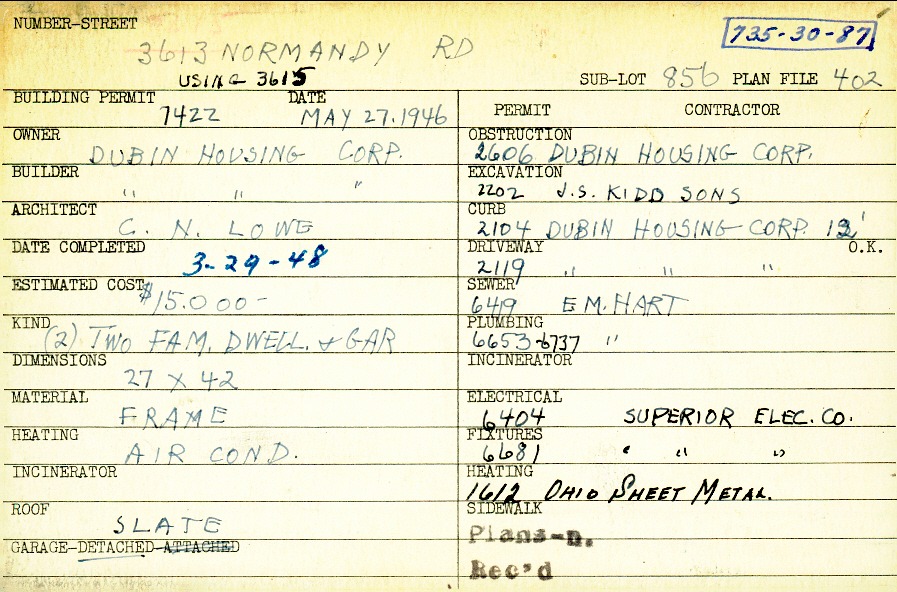 NUMBER-STREET
735-30-87
3613 NORMANDY RD
USING 3615
SUB-LOT 856 PLAN FILE 402
BUILDING PERMIT DATE
7422 MAY 27.1946
OWNER
DUBIN HOUSING CORP.
BUILDER
" " "
ARCHITECT
C. N. LOWE
DATE COMPLETED
3-29-48
ESTIMATED COST
$15.000-
KIND
(2) TWO FAM. DWELL. & GAR
DIMENSIONS
27 X 42
MATERIAL
FRAME
HEATING
AIR COND.
INCINERATOR
ROOF
SLATE
GARAGE-DETACHED-ATTACHED
PERMIT CONTRACTOR
OBSTRUCTION
2606 DUBIN HOUSING CORP.
EXCAVATION
2202 J.S. KIDD SONS
CURB
2104 DUBIN HOUSING CORP. 12'
DRIVEWAY O.K.
2119 " " "
SEWER
6419 E M. HART
PLUMBING
6653-6737 "
INCINERATOR
ELECTRICAL
6404 SUPERIOR ELEC. CO.
FIXTURES
6681 " " "
HEATING
1612 OHIO SHEET METAL.
SIDEWALK
Plans-n.
Rec'd